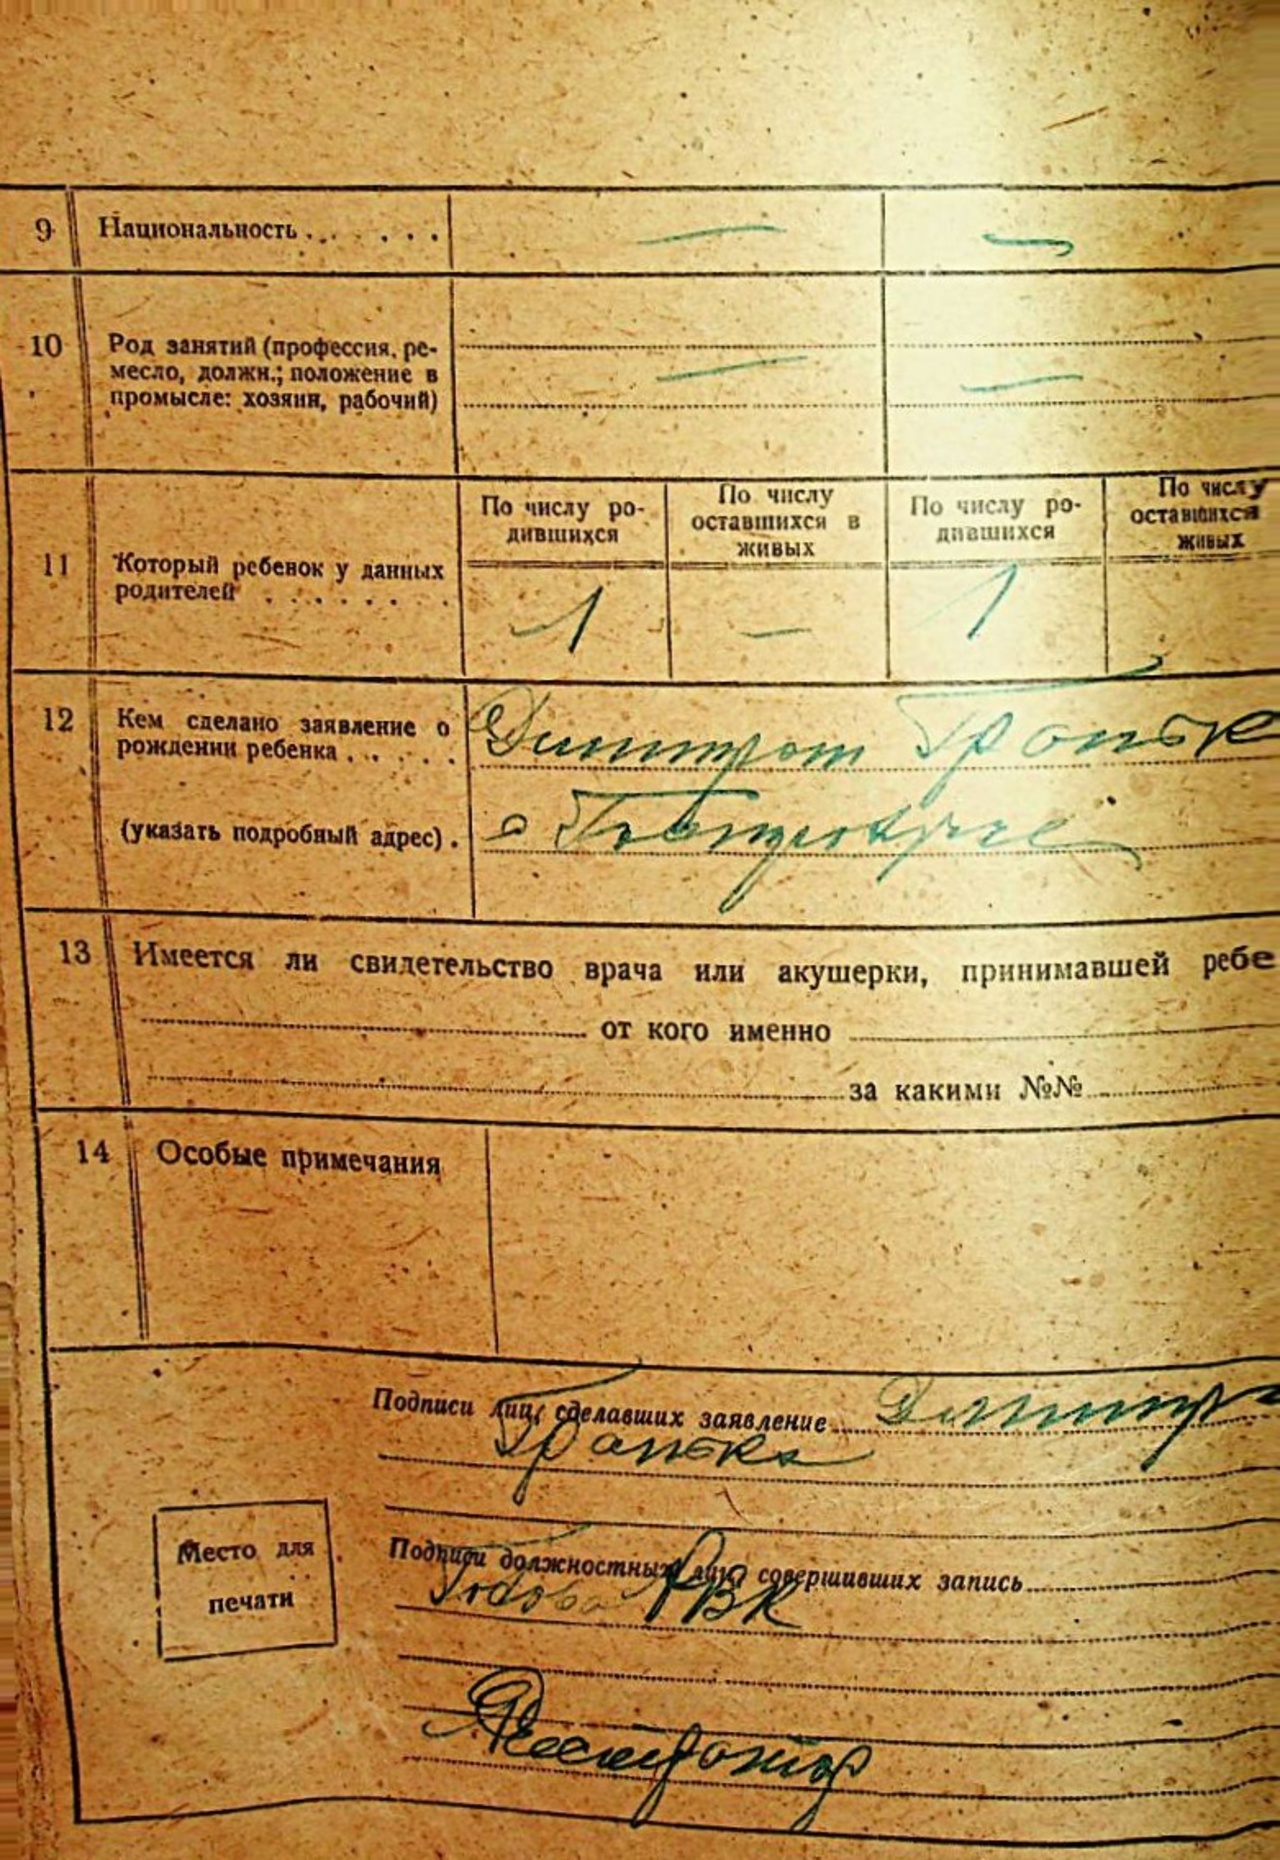 9 Национальность . . . . . . — —
10 Род занятий (профессия, ре-
месло, должн.; положение в
промысле: хозяин, рабочий) — —
По числу ро-
дившихся
По числу
оставшихся в
живых
По числу ро-
дившихся
По числу
оставшихся
живых
11 Который ребенок у данных
родителей . . . . . . . 1 — 1
12 Кем сделано заявление о
рождении ребенка . . . . .
(указать подробный адрес) .
13 Имеется ли свидетельство врача или акушерки, принимавшей ребе
от кого именно
за какими №№
14 Особые примечания
Подписи лиц, сделавших заявление
Подписи должностных лиц, совершивших запись
Голова РВК
Место для
печати